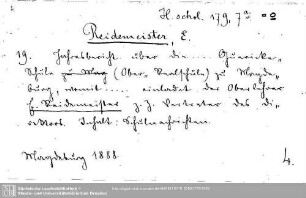 H. schol. 179, 7ⁿ
Reidemeister, E.
19. Jahresbericht über die ... Guericke-
Schule zu Mag (Ober-Realschule) zu Magde-
burg, womit .... einladet der Oberlehrer
E. Reidemeister z. Z. Vertreter des Di-
rektors. Inhalt: Schulnachrichten.
Magdeburg 1888.
4.
Sächsische Landesbibliothek -
Staats- und Universitätsbibliothek Dresden